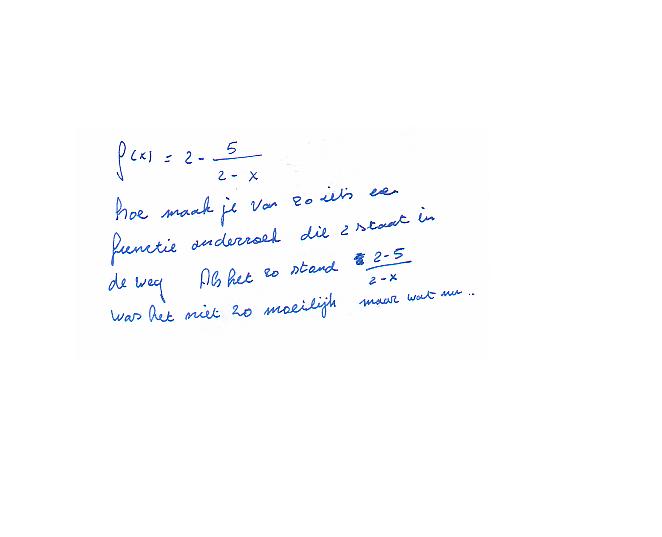 f(x) = 2 - 5/(2 - x)
hoe maak je van zo iets een
functie onderzoek die 2 staat in
de weg Als het zo stand (2-5)/(2-x)
was het niet zo moeilijk maar wat nu ..